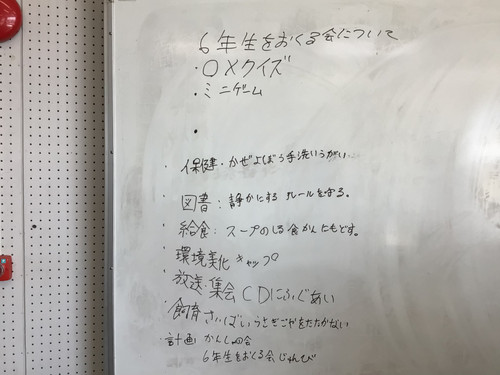 6年生をおくる会について
・OXクイズ
・ミニゲーム
・
・保健・かぜよぼう手洗いうがい
・図書:静かにする ルールを守る。
・給食:スープのしる食かんにもどす。
・環境美化 キャップ
・放送・集会 CDにふぐあい
・飼育 さいばい うさぎごやをたたかない
・計画
6年生をおくる会じゅんび